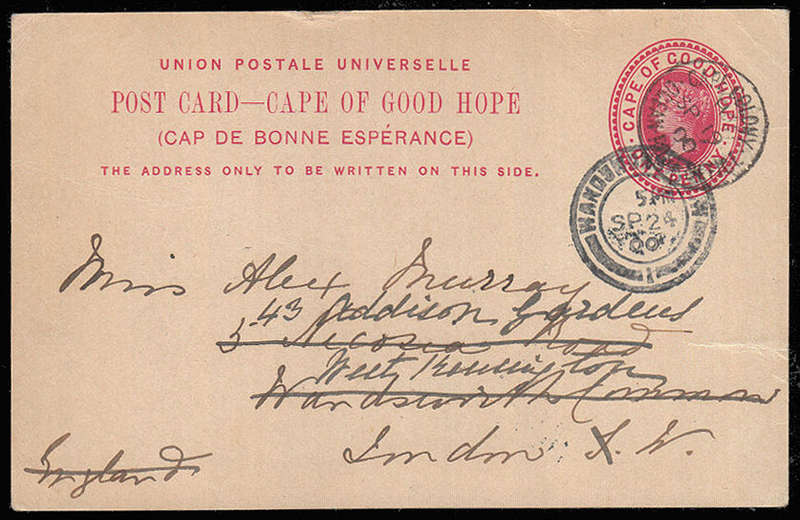 UNION POSTALE UNIVERSELLE
POST CARD—CAPE OF GOOD HOPE
(CAP DE BONNE ESPÉRANCE)
THE ADDRESS ONLY TO BE WRITTEN ON THIS SIDE.
CAPE OF GOOD HOPE
ONE PENNY
COLONY
WANDSW
5 PM
SP 24
00
1
Miss Alex Murray
43 Addison Gardens
5 Nicosia Road
West Kensington
Wandsworth Common
London S. W.
England